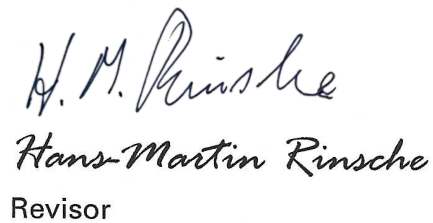 H. M. Rinsche
Hans-Martin Rinsche
Revisor